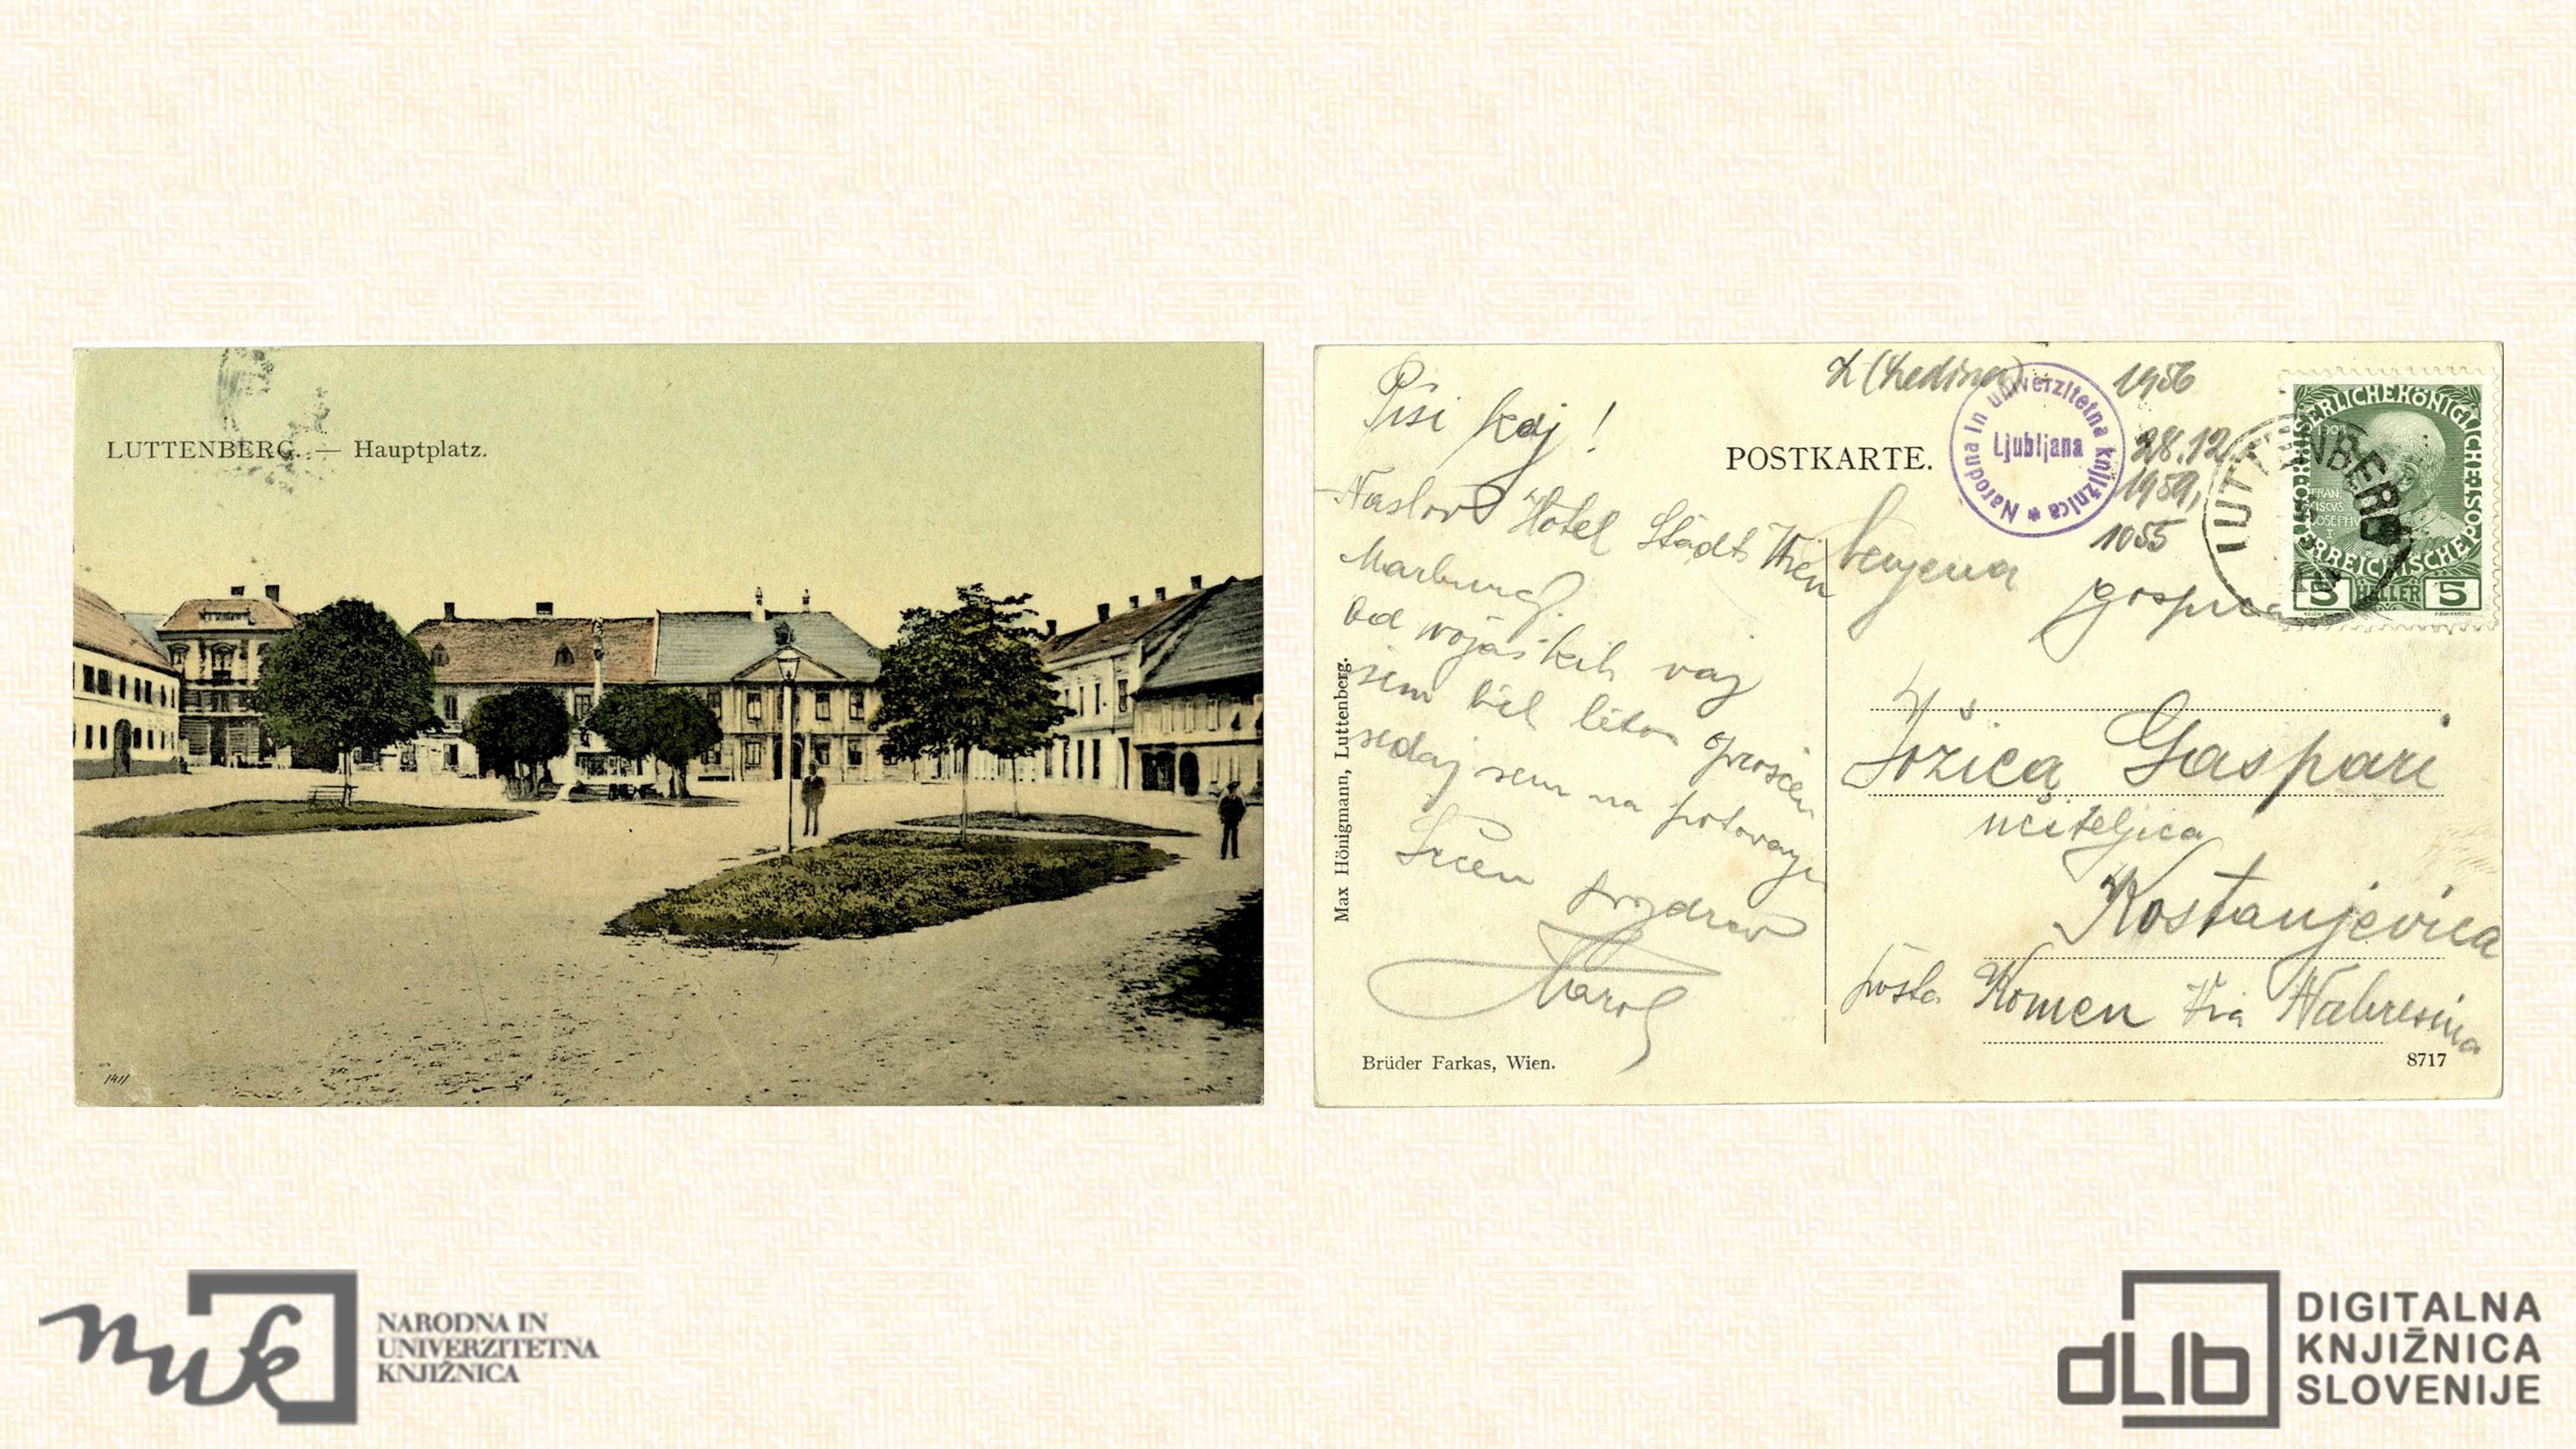 LUTTENBERG. — Hauptplatz.
1411
Piši kaj!
Naslov Hotel Stadt Wien
Marburg.
Od vojaških vaj
sem bil letos oproščen
sedaj sem na potovanju
Srčen pozdrav
Karol
Max Hönigmann, Luttenberg.
Brüder Farkas, Wien.
POSTKARTE.
1956
28.12.
1959,
1055
Narodna in univerzitetna knjižnica
Ljubljana
LUTTENBERG
KAISERLICHE KÖNIGLICHE ÖSTERREICHISCHE POST
FRANCISCVS JOSEPHVS I
5 HELLER 5
Cenjena
gospica
Jožica Gaspari
učiteljica
Kostanjevica
pošta Komen via Nabresina
8717
nuk
NARODNA IN
UNIVERZITETNA
KNJIŽNICA
dLib
DIGITALNA
KNJIŽNICA
SLOVENIJE